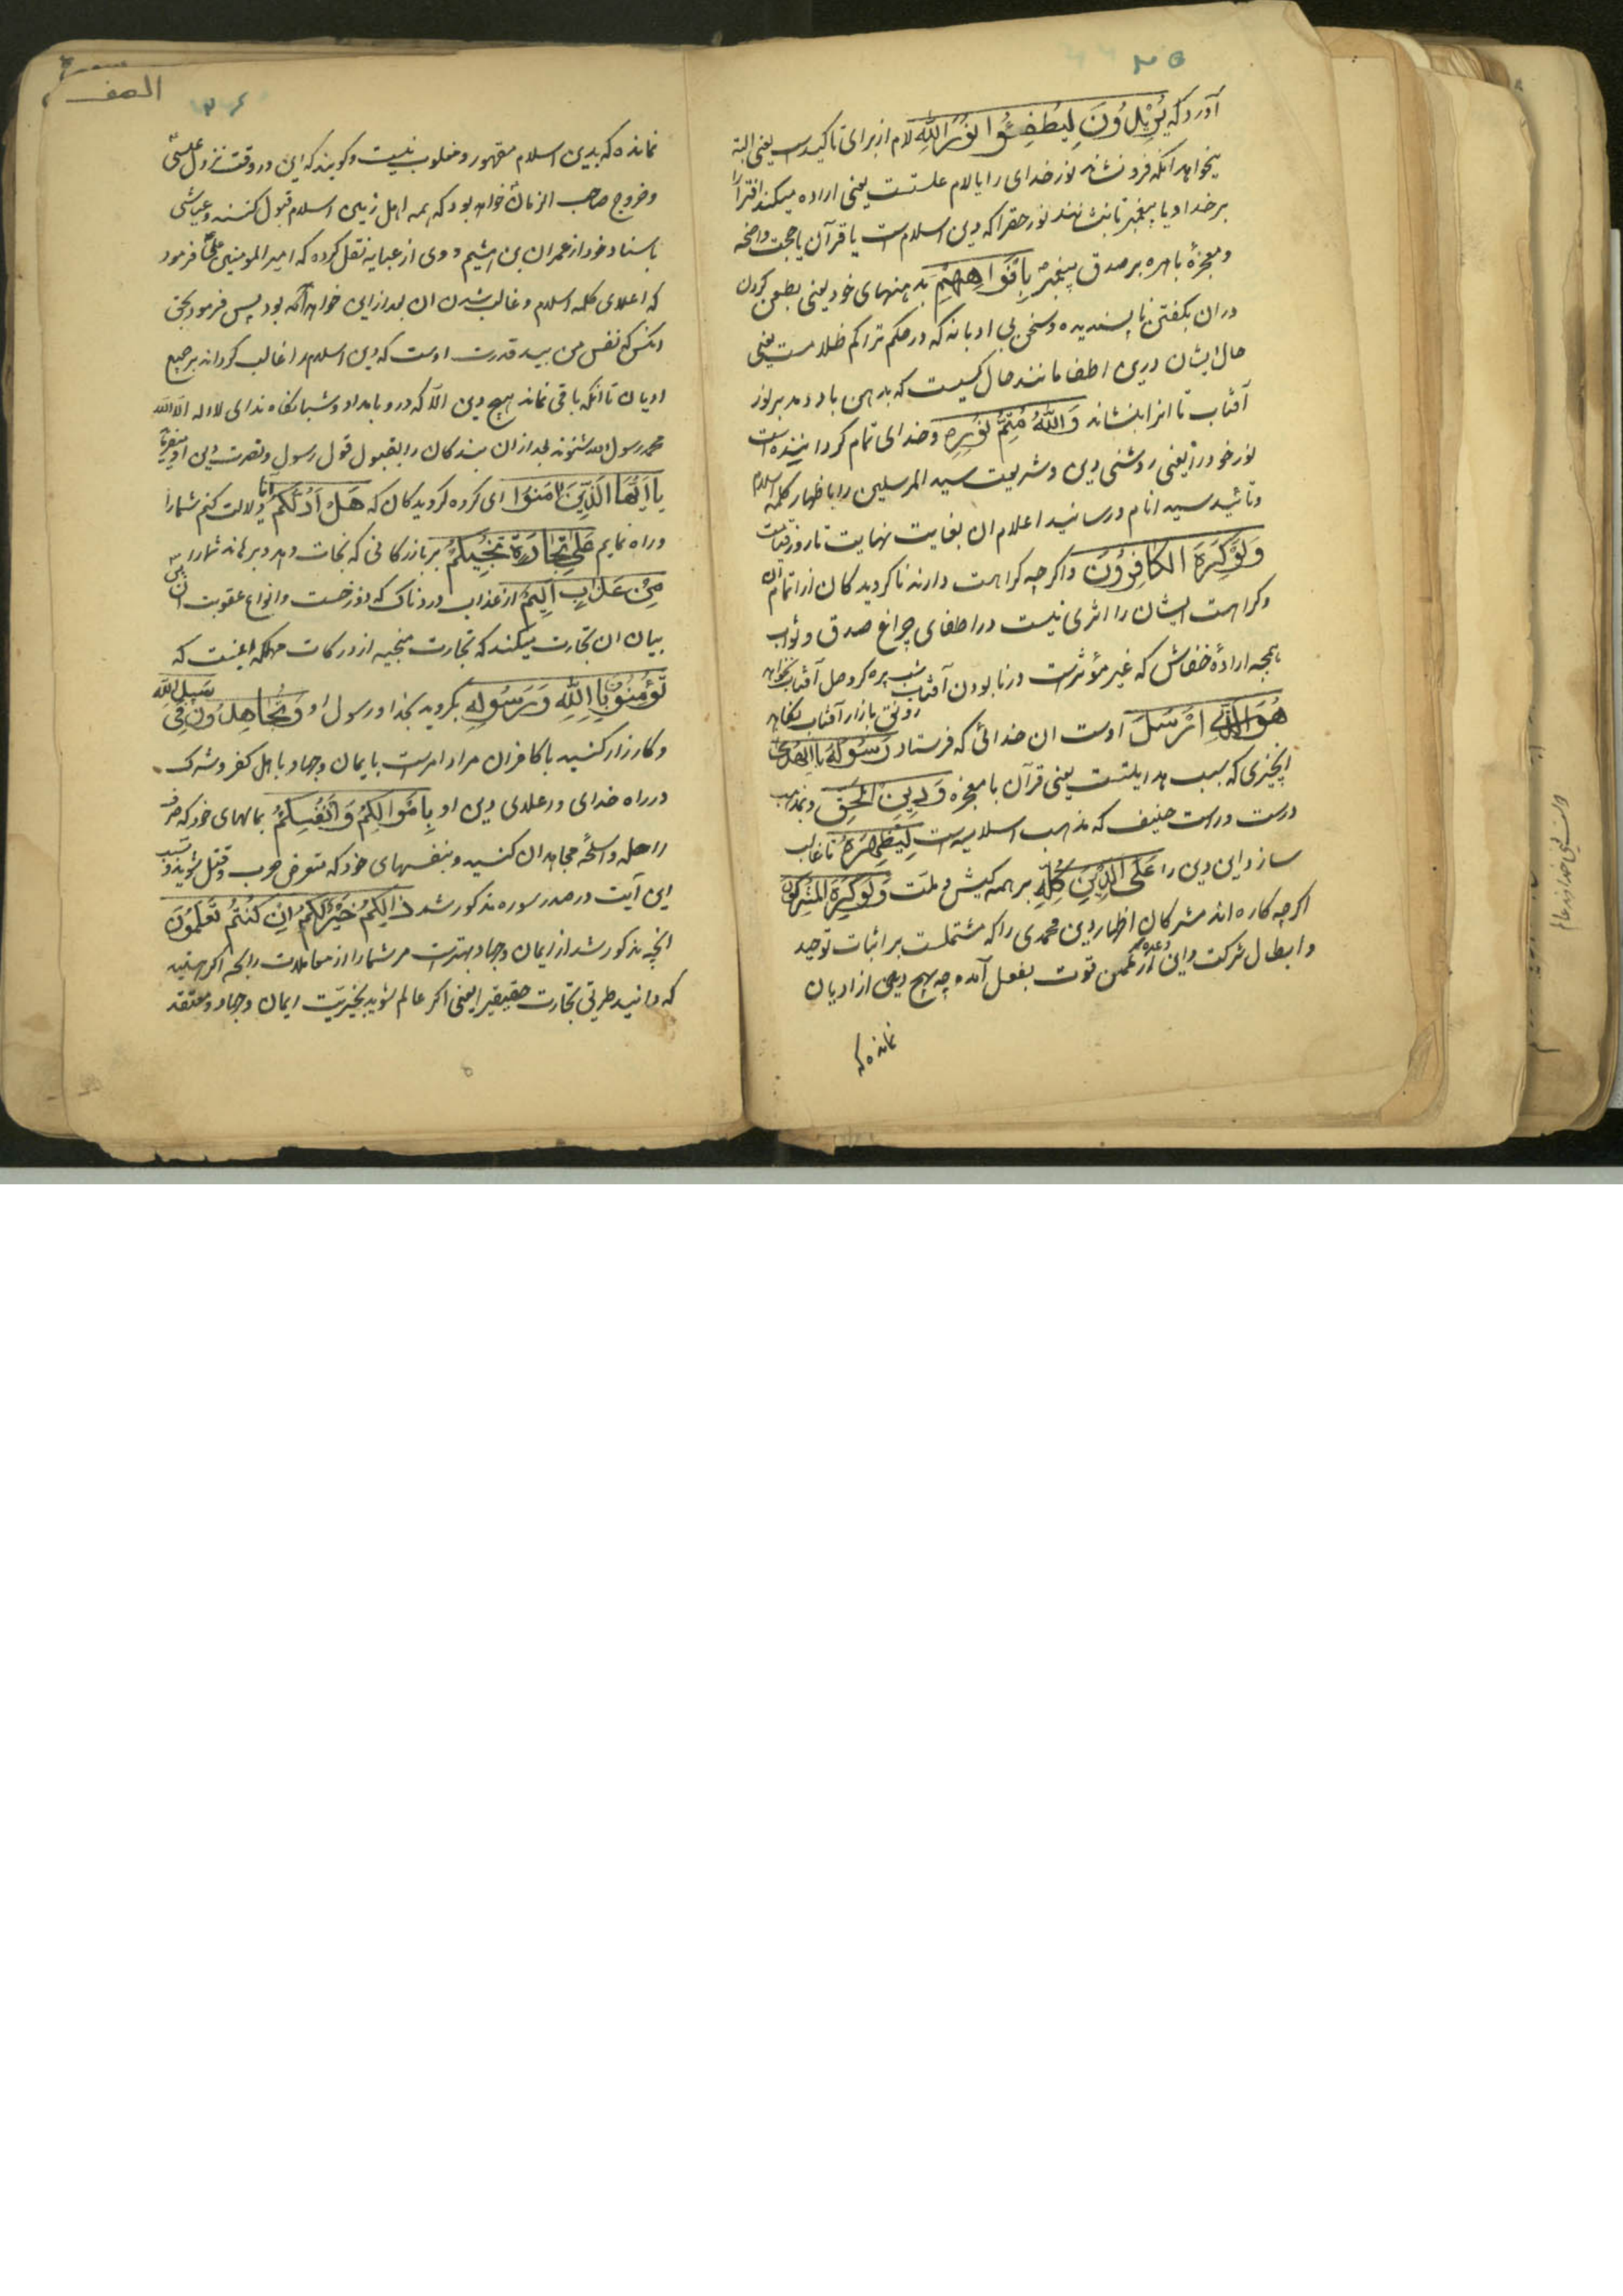 ۲۵
آورد که یُرِیدُونَ لِیُطْفِؤُا نُورَ اللّهِ لام از برای تاکید است یعنی البته
میخواهند آنکه فرو نشانند نور خدای را یا لام علتست یعنی اراده میکنند افترا را
بر خدا و یا پیغمبر تا بنشانند نور حقرا که دین اسلام است یا قرآن یا حجت واضحه
و معجزهٔ باهره بر صدق پیغمبر بِاَفْوَاهِهِمْ بدهنهای خود یعنی بطعن کردن
در ان بگفتن ناپسندیده و سخن بی ادبانه که در حکم تراکم ظلامست یعنی
حال ایشان درین اطفا مانند حال کسیست که بدهن باد دمد بر نور
آفتاب تا انرا بنشاند وَاللّهُ مُتِمُّ نُورِهِ و خدای تمام کردانیننده است
نور خود را یعنی روشنی دین و شریعت سید المرسلین را باظهار کلمه اسلام
و تائید سید انام و رسانید اعلام ان بغایت نهایت تا روز قیامت
وَلَوْ کَرِهَ الْکَافِرُونَ و اکرچه کراهت دارند ناکرویدکان از اتمام ان
و کراهت ایشان را اثری نیست در اطفای چراغ صدق و ثواب
همچه ارادهٔ خفاش که غیر مؤثر است در نابودن آفتاب شب پره کر وصل آفتاب نخواهد
رونق بازار آفتاب نکاهد
هُوَ الَّذِی اَرْسَلَ اوست ان خدائی که فرستاد رَسُولَهُ بِالْهُدٰی
انچیزی که سبب هدایتست یعنی قرآن با معجزه وَدِینِ الْحَقِّ و بمذهب
درست و راست حنیف که مذهب اسلامیه است لِیُظْهِرَهُ تا غالب
سازد این دین را عَلَی الدِّینِ کُلِّهِ بر همه کیش و ملت وَلَوْ کَرِهَ الْمُشْرِکُونَ
اکرچه کاره اند مشرکان اظهار دین محمدی را که مشتملست بر اثبات توحید
و ابطال شرکت و این وعده از مکمن قوت بفعل آمده چه هیچ دینی از ادیان
نمانده که
سوره
الصف
۲۶
نمانده که بدین اسلام مقهور و مغلوب نیست و کویند که این در وقت نزول عیسی
و خروج صاحب الزمان خواهد بود که همه اهل زمین اسلام قبول کنند و عیاشی
باسناد خود از عمران بن میثم و وی از عبایه نقل کرده که امیر المومنین علی فرمود
که اعلای کلمه اسلام و غالب شدن ان بعد از این خواهد بود پس فرمود بحق
انکس که نفس من بید قدرت اوست که دین اسلام را غالب کرداند بر جمیع
ادیان تا انکه باقی نماند هیچ دین الا که در و بامداد و شبانکاه ندای لا اله الا الله
محمد رسول الله شنوند بعد از ان بندکان را بقبول قول رسول و نصرت دین او میفرماید
یَا اَیُّهَا الَّذِینَ اٰمَنُوا ای کروه کرویدکان که هَلْ اَدُلُّکُمْ آیا دلالت کنم شما را
و راه نمایم عَلٰی تِجَارَةٍ تُنْجِیکُمْ بر بازرکانی که نجات دهد و برهاند شما را
مِنْ عَذَابٍ اَلِیمٍ از عذاب دردناک که دوزخست و انواع عقوبت ان پس
بیان ان تجارت میکند که تجارت منجیه از درکات مهلکه اینست که
تُؤْمِنُونَ بِاللّهِ وَرَسُولِهِ بکروید بخدا و رسول او وَتُجَاهِدُونَ فِی سَبِیلِ اللّهِ
و کارزار کنید با کافران مراد امر است بایمان و جهاد با اهل کفر و شرک
در راه خدای و در علدی دین او بِاَمْوَالِکُمْ وَاَنْفُسِکُمْ بمالهای خود که صرف
راحله و اسلحهٔ مجاهدان کنید و بنفسهای خود که متعرض حرب و قتل شوید و سبب
این آیت در صدر سوره مذکور شد ذٰلِکُمْ خَیْرٌ لَکُمْ اِنْ کُنْتُمْ تَعْلَمُونَ
انچه مذکور شد از ایمان و جهاد بهتر است مر شما را از معاملات رابحه اکر هستید
که دانید طریق تجارت حقیقیرا یعنی اکر عالم شوید بخیریت ایمان و جهاد و معتقد